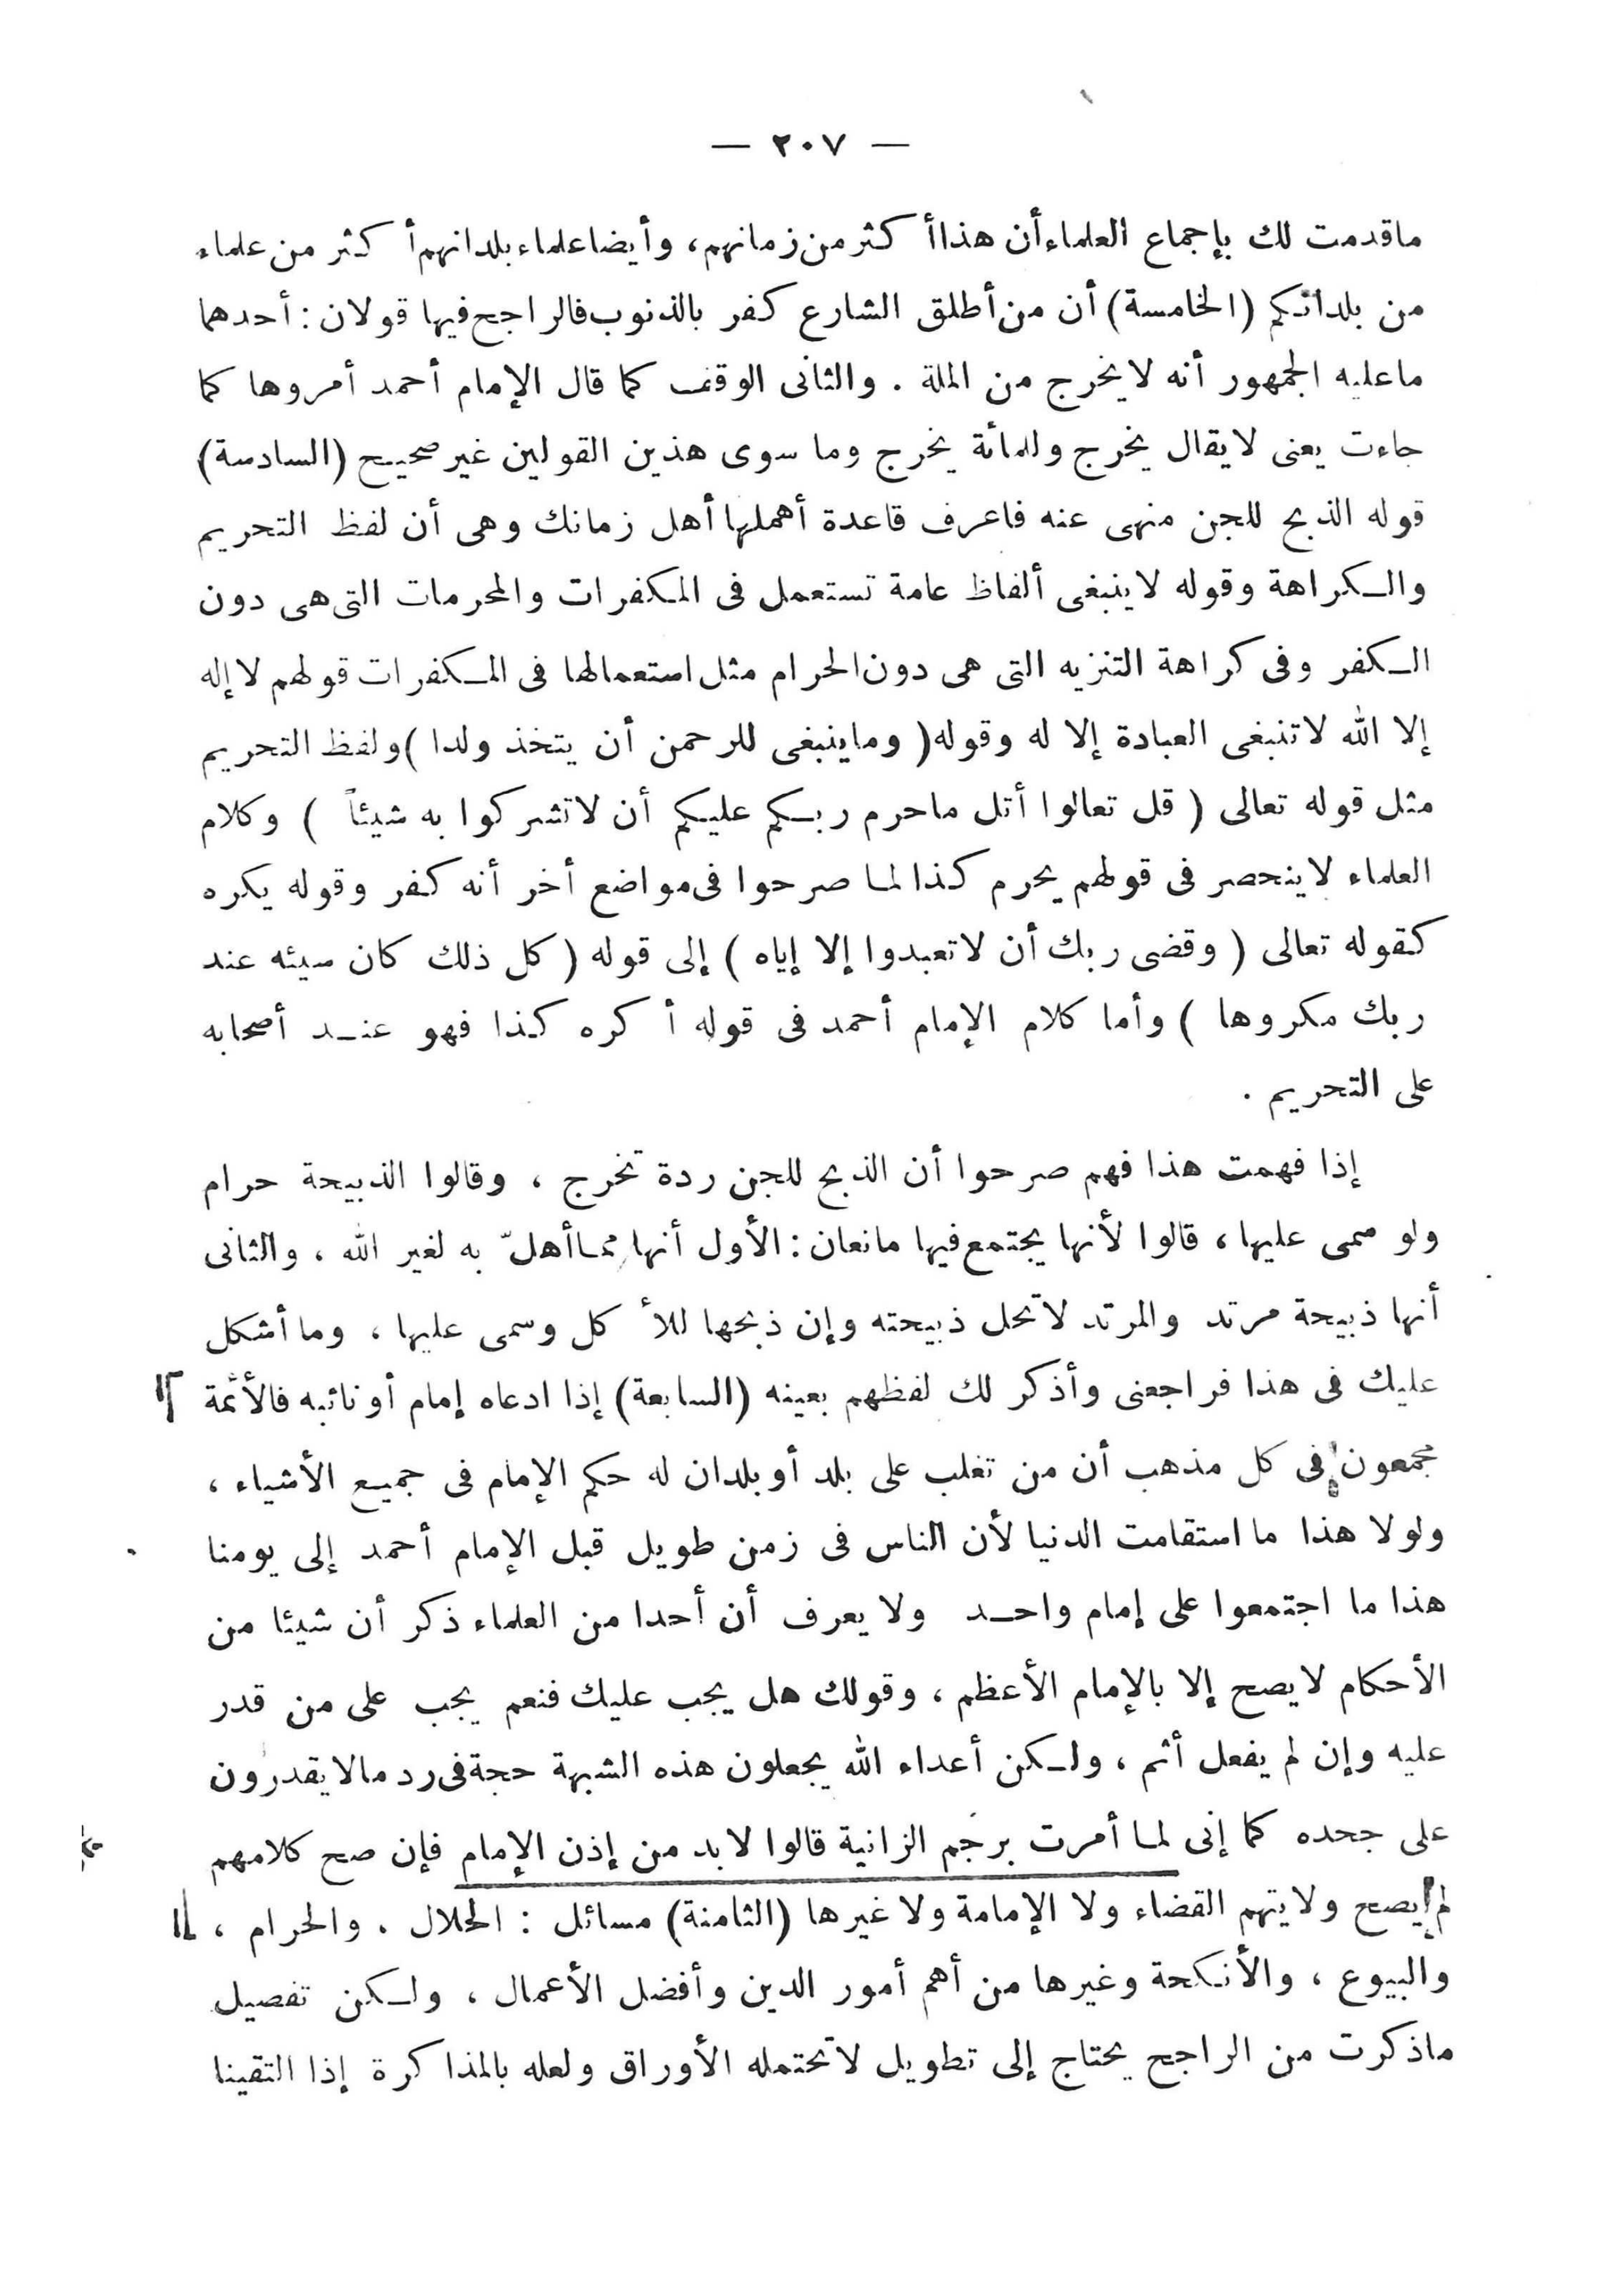 — ٢٠٧ —
ماقدمت لك بإجماع العلماء أن هذا أكثر من زمانهم، وأيضا علماء بلدانهم أكثر من علماء
من بلدانكم (الخامسة) أن من أطلق الشارع كفر بالذنوب فالراجح فيها قولان : أحدهما
ماعليه الجمهور أنه لايخرج من الملة . والثانى الوقف كما قال الإمام أحمد أمروها كما
جاءت يعنى لايقال يخرج وللمائة يخرج وما سوى هذين القولين غير صحيح (السادسة)
قوله الذبح للجن منهى عنه فاعرف قاعدة أهملها أهل زمانك وهى أن لفظ التحريم
والكراهة وقوله لاينبغى ألفاظ عامة تستعمل فى المكفرات والمحرمات التى هى دون
الكفر وفى كراهة التنزيه التى هى دون الحرام مثل استعمالها فى المكفرات قولهم لا إله
إلا الله لاتنبغى العبادة إلا له وقوله ( وماينبغى للرحمن أن يتخذ ولدا ) ولفظ التحريم
مثل قوله تعالى ( قل تعالوا أتل ماحرم ربكم عليكم أن لاتشركوا به شيئاً ) وكلام
العلماء لاينحصر فى قولهم يحرم كذا لما صرحوا فى مواضع أخر أنه كفر وقوله يكره
كقوله تعالى ( وقضى ربك أن لاتعبدوا إلا إياه ) إلى قوله ( كل ذلك كان سيئه عند
ربك مكروها ) وأما كلام الإمام أحمد فى قوله أكره كذا فهو عند أصحابه
على التحريم .
إذا فهمت هذا فهم صرحوا أن الذبح للجن ردة تخرج ، وقالوا الذبيحة حرام
ولو سمى عليها، قالوا لأنها يجتمع فيها مانعان : الأول أنها مما أهلّ به لغير الله ، والثانى
أنها ذبيحة مرتد والمرتد لاتحل ذبيحته وإن ذبحها للأكل وسمى عليها ، وما أشكل
عليك فى هذا فراجعنى وأذكر لك لفظهم بعينه (السابعة) إذا ادعاه إمام أو نائبه فالأئمة
مجمعون فى كل مذهب أن من تغلب على بلد أو بلدان له حكم الإمام فى جميع الأشياء ،
ولولا هذا ما استقامت الدنيا لأن الناس فى زمن طويل قبل الإمام أحمد إلى يومنا
هذا ما اجتمعوا على إمام واحد ولا يعرف أن أحدا من العلماء ذكر أن شيئا من
الأحكام لايصح إلا بالإمام الأعظم ، وقولك هل يجب عليك فنعم يجب على من قدر
عليه وإن لم يفعل أثم ، ولكن أعداء الله يجعلون هذه الشبهة حجة فى رد مالايقدرون
على جحده كما إنى لما أمرت برجم الزانية قالوا لابد من إذن الإمام فإن صح كلامهم
لم يصح ولايتهم القضاء ولا الإمامة ولا غيرها (الثامنة) مسائل : الحلال . والحرام ،
والبيوع ، والأنكحة وغيرها من أهم أمور الدين وأفضل الأعمال ، ولكن تفصيل
ماذكرت من الراجح يحتاج إلى تطويل لاتحتمله الأوراق ولعله بالمذاكرة إذا التقينا